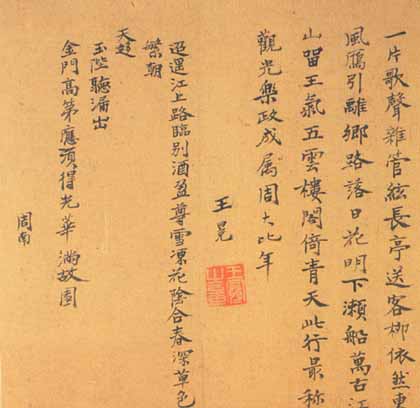 一片歌聲雜管絃長亭送客柳依然東
風鴈引離鄉路落日花明下瀨船萬古江
山留王氣五雲樓閣倚青天此行最稱
觀光樂政成属周大比年
王冕
迢遞江上路臨别酒盈尊雪凍花陰合春深草色
繁朝
天趍
玉陛聽漏出
金門高第應須得光華滿故園
周南